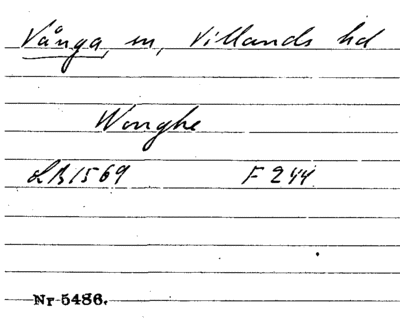 Vånga, sn, Villands hd
Wonghe
LB 1569 F 244
Nr 5486.